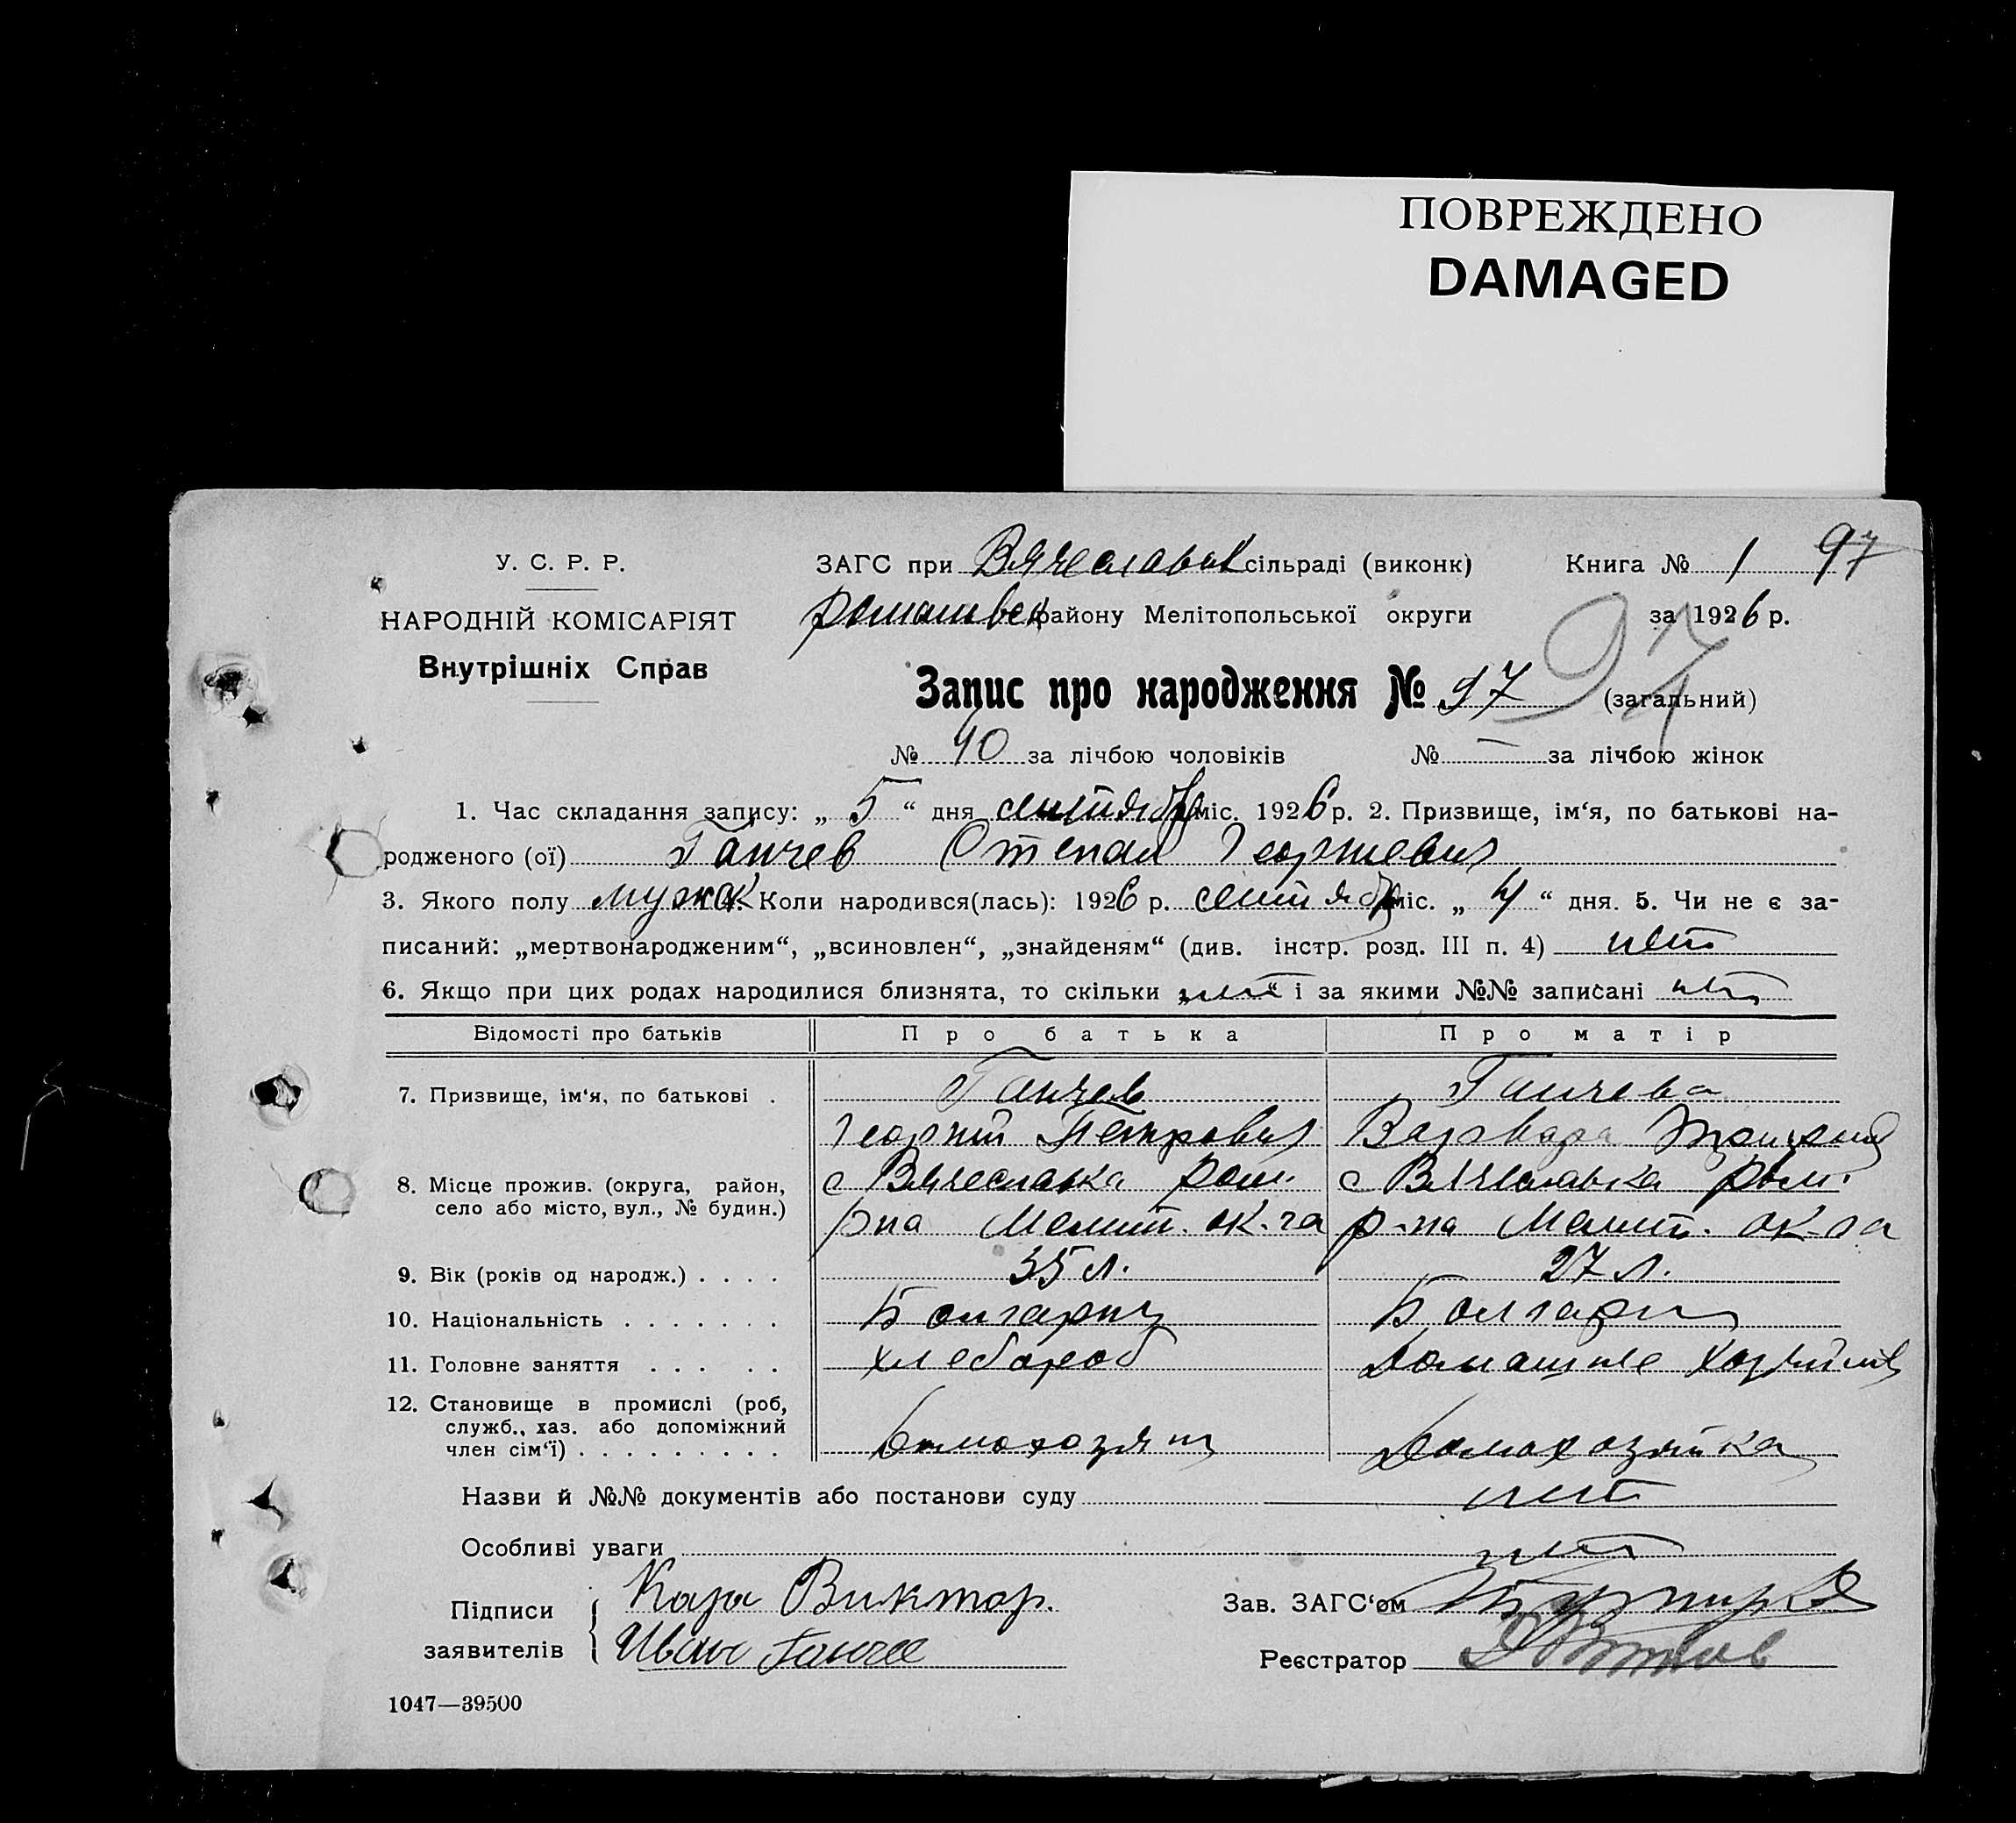 ПОВРЕЖДЕНО
DAMAGED
У. С. Р. Р.
НАРОДНІЙ КОМІСАРІЯТ
Внутрішніх Справ
ЗАГС при Вячеславск сільраді (виконк)
Книга № 1 97
района Мелітопольської округи
за 1926 р.
97
Запис про народження № 97 (загальний)
№ 40 за лічбою чоловіків № — за лічбою жінок
1. Час складання запису: „ 5 “ дня сентября міс. 1926 р. 2. Призвище, ім‘я, по батькові на-
родженого (ої) Ганчев Степан Георгиевич
3. Якого полу мужск 4. Коли народився(лась): 1926 р. сентябр міс. „ 4 “ дня. 5. Чи не є за-
писаний: „мертвонародженим“, „всиновлен“, „знайденям“ (див. інстр. розд. III п. 4) нет
6. Якщо при цих родах народилися близнята, то скільки „нет“ і за якими №№ записані нет
Відомості про батьків Про батька Про матір
7. Призвище, ім‘я, по батькові . Ганчев Ганчева
Георгий Петрович Варвара
8. Місце прожив. (округа, район, с Вячеславка Ром. с Вячеславка Ром.
село або місто, вул., № будин.) р на Мелит. ок-га р-на Мелит. ок-га
9. Вік (років од народж.) . . . . 35 л. 27 л.
10. Національність . . . . . . . Болгарин Болгарин
11. Головне заняття . . . . . хлебороб Домашнее
12. Становище в промислі (роб,
служб., хаз. або допоміжний
член сім‘ї) . . . . . . . . . домохозяин Домохозяйка
Назви й №№ документів або постанови суду нет
Особливі уваги нет
Підписи Кара Виктор.
заявителів Иван Ганчев
Зав. ЗАГС‘ом
Реєстратор
1047—39500